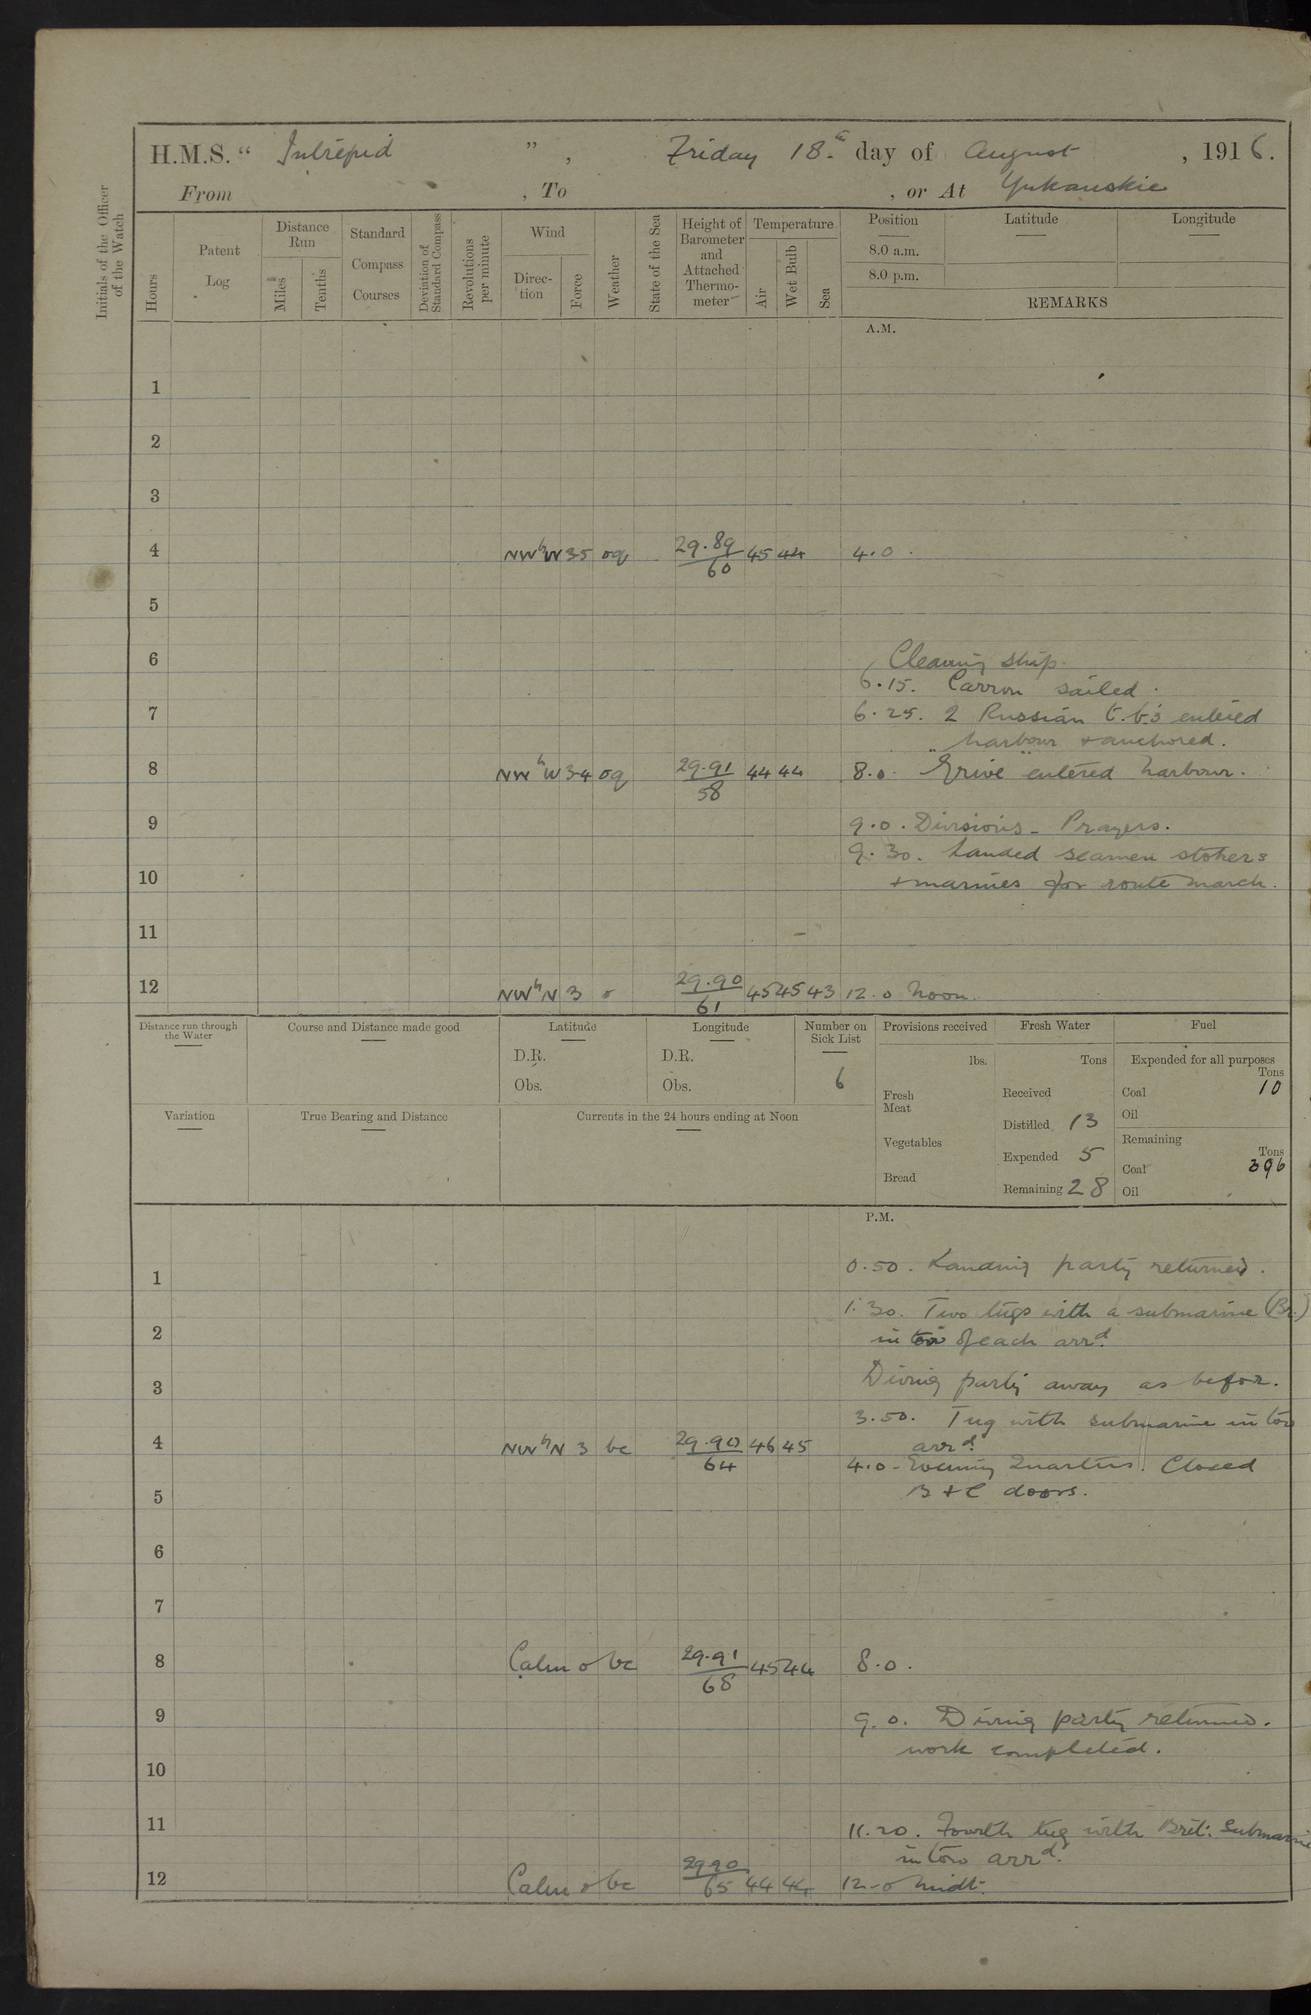 H.M.S. “ Intrepid ” , Friday 18.th day of August , 1916.
From , To , or At Yukanskie
Initials of the Officer of the Watch
Hours
Patent Log
Distance Run
Miles
Tenths
Standard Compass Courses
Deviation of Standard Compass
Revolutions per minute
Wind
Direc-tion
Force
Weather
State of the Sea
Height of Barometer and Attached Thermo-meter
Temperature
Air
Wet Bulb
Sea
Position
Latitude
Longitude
8.0 a.m.
8.0 p.m.
REMARKS
A.M.
1
2
3
4 NWbW 3-5 oq 29.89/60 45 44 4.0.
5
6 Cleaning ship.
6.15. Carron sailed.
7 6.25. 2 Russian t.b's entered
harbour & anchored.
8 NWbW 3-4 oq 29.91/58 44 44 8.0. "Grive" entered harbour.
9 9.0. Divisions - Prayers.
9.30. Landed seamen stokers
10 & marines for route march.
11
12 NWbN 3 o 29.90/61 45 45 43 12.0 Noon.
Distance run through the Water
Course and Distance made good
Latitude
D.R.
Obs.
Longitude
D.R.
Obs.
Number on Sick List
6
Provisions received
lbs.
Fresh Meat
Vegetables
Bread
Fresh Water
Tons
Received
Distilled 13
Expended 5
Remaining 28
Fuel
Expended for all purposes
Tons
Coal 10
Oil
Remaining
Tons
Coal 396
Oil
Variation
True Bearing and Distance
Currents in the 24 hours ending at Noon
P.M.
1 0.50. Landing party returned.
1.30. Two tugs with a submarine (Br.)
2 in tow of each arrd.
3 Diving party away as befor.
3.50. Tug with submarine in tow
4 NWbN 3 bc 29.90/64 46 45 arrd.
4.0 - Evening Quarters. Closed
5 B & C doors.
6
7
8 Calm o bc 29.91/68 45 44 8.0.
9 9.0. Diving party returned.
work completed.
10
11 11.20. Fourth tug with Brit: Submarine
in tow arrd.
12 Calm o bc 29.90/65 44 44 12-0 Midt.